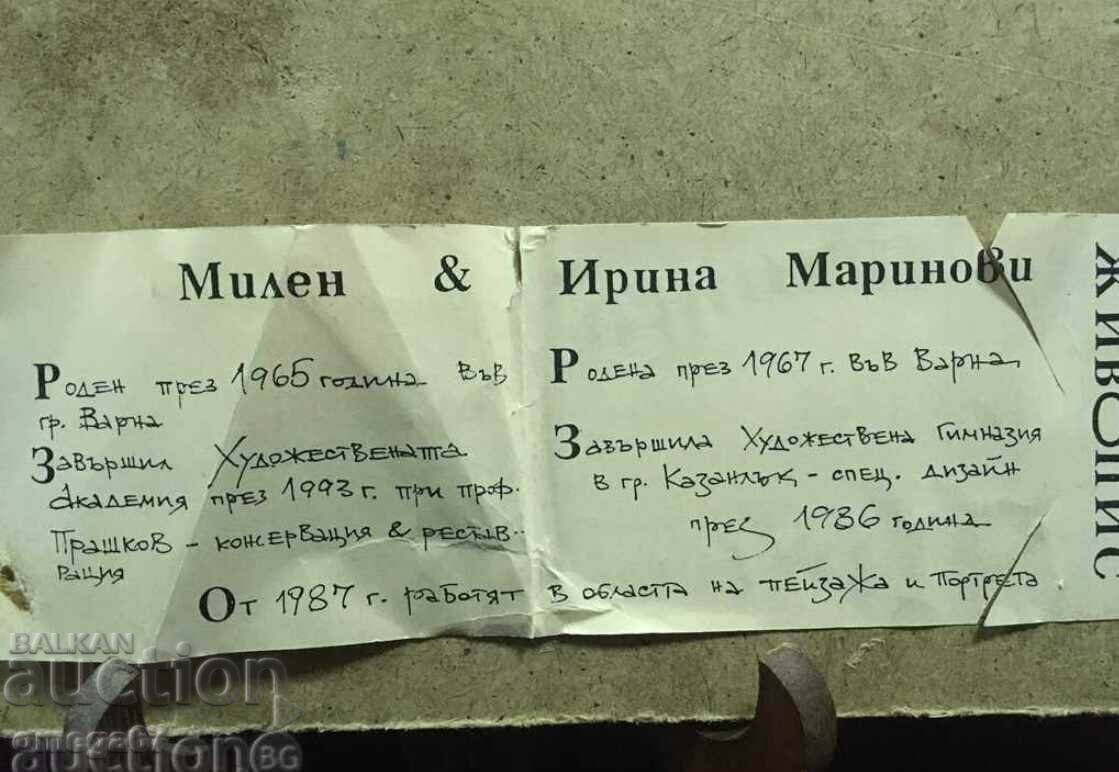 Милен & Ирина Маринови
Роден през 1965 година във
гр. Варна
Завършил Художествената
академия през 1993 г. при проф.
Прашков - консервация & рестав-
рация
Родена през 1967 г. във Варна
Завършила Художествена Гимназия
в гр. Казанлък - спец. дизайн
през 1986 година
От 1987 г. работят в областа на пейзажа и портрета
ЖИВОПИС
BALKAN
auction
auction BG